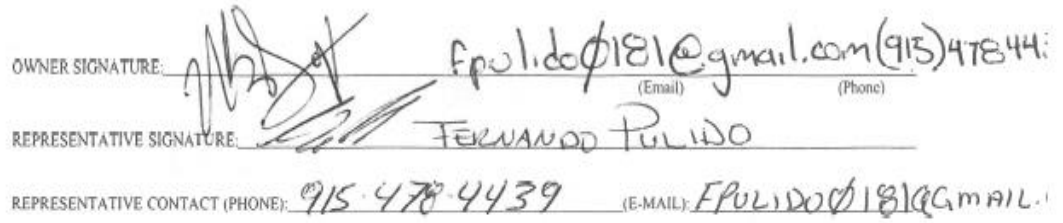 OWNER SIGNATURE: fpulido0181@gmail.com (915)47844
(Email) (Phone)
REPRESENTATIVE SIGNATURE: FERNANDO PULIDO
REPRESENTATIVE CONTACT (PHONE): 915-478-4439 (E-MAIL): FPULIDO0181@GMAIL.